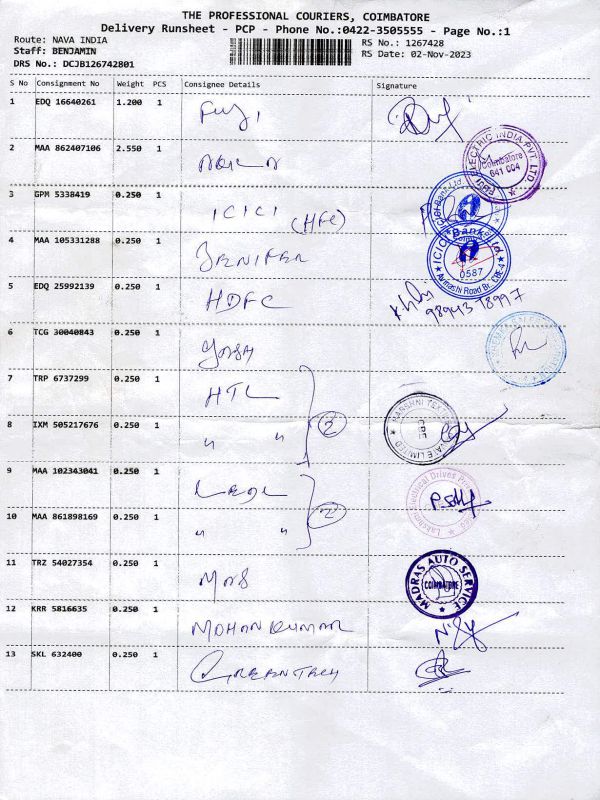 THE PROFESSIONAL COURIERS, COIMBATORE
Delivery Runsheet - PCP - Phone No.:0422-3505555 - Page No.:1
Route: NAVA INDIA
RS No.: 1267428
Staff: BENJAMIN
RS Date: 02-Nov-2023
DRS No.: DCJB126742801
S No Consignment No Weight PCS Consignee Details Signature
1 EDQ 16640261 1.200 1
2 MAA 862407106 2.550 1
ELECTRIC INDIA PVT LTD. Coimbatore 641 004
3 GPM 5338419 0.250 1 ICICI (HFC)
4 MAA 105331288 0.250 1 JENIFER
ICICI Bank Ltd 0587 Avinashi Road Br. CBE-4
5 EDQ 25992139 0.250 1 HDFC
98943 78997
6 TCG 30040843 0.250 1
7 TRP 6737299 0.250 1 HTL
2
8 IXM 505217676 0.250 1 " "
CBE
9 MAA 102343041 0.250 1
2
10 MAA 861898169 0.250 1 " "
11 TRZ 54027354 0.250 1 MAS
MADRAS AUTO SERVICE COIMBATORE
12 KRR 5816635 0.250 1 MOHAN KUMAR
13 SKL 632400 0.250 1 GREENTECH